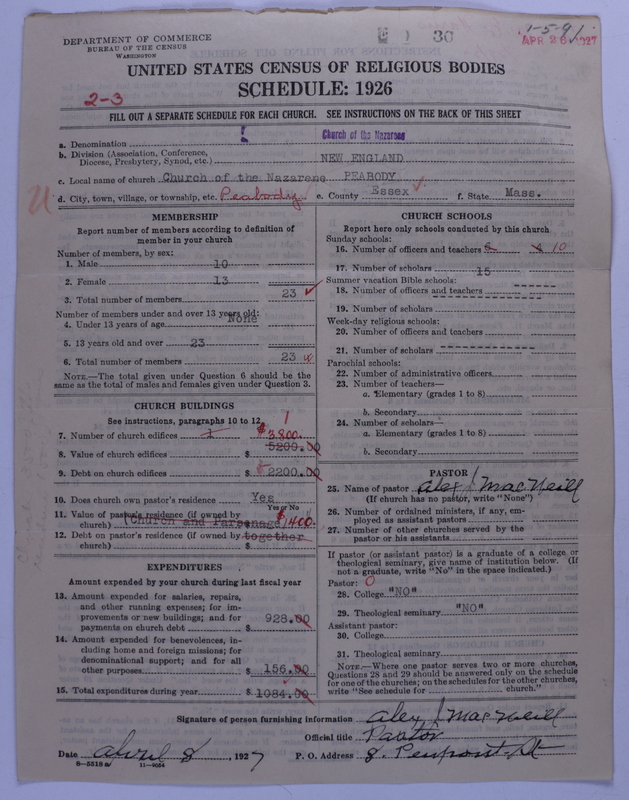 DEPARTMENT OF COMMERCE
BUREAU OF THE CENSUS
WASHINGTON
30
1-5-91
APR 26 1927
UNITED STATES CENSUS OF RELIGIOUS BODIES
SCHEDULE: 1926
2-3
FILL OUT A SEPARATE SCHEDULE FOR EACH CHURCH. SEE INSTRUCTIONS ON THE BACK OF THIS SHEET
a. Denomination Church of the Nazarene
b. Division (Association, Conference, Diocese, Presbytery, Synod, etc.) NEW ENGLAND
c. Local name of church Church of the Nazarene PEABODY
d. City, town, village, or township, etc. Peabody e. County Essex f. State Mass.
MEMBERSHIP
Report number of members according to definition of member in your church
Number of members, by sex:
1. Male 10
2. Female 13
3. Total number of members 23
Number of members under and over 13 years old:
4. Under 13 years of age None
5. 13 years old and over 23
6. Total number of members 23
NOTE.—The total given under Question 6 should be the same as the total of males and females given under Question 3.
CHURCH BUILDINGS
See instructions, paragraphs 10 to 12
7. Number of church edifices 1 1
8. Value of church edifices $ 5200.00 $3,800.
9. Debt on church edifices $ 2200.00
10. Does church own pastor's residence Yes
Yes or No
11. Value of pastor's residence (if owned by church) (Church and Parsonage $1400.
12. Debt on pastor's residence (if owned by church) together $
EXPENDITURES
Amount expended by your church during last fiscal year
13. Amount expended for salaries, repairs, and other running expenses; for improvements or new buildings; and for payments on church debt $ 928.00
14. Amount expended for benevolences, including home and foreign missions; for denominational support; and for all other purposes $ 156.00
15. Total expenditures during year $ 1084.00
CHURCH SCHOOLS
Report here only schools conducted by this church
Sunday schools:
16. Number of officers and teachers 10
17. Number of scholars 15
Summer vacation Bible schools:
18. Number of officers and teachers
19. Number of scholars
Week-day religious schools:
20. Number of officers and teachers
21. Number of scholars
Parochial schools:
22. Number of administrative officers
23. Number of teachers—
a. Elementary (grades 1 to 8)
b. Secondary
24. Number of scholars—
a. Elementary (grades 1 to 8)
b. Secondary
PASTOR
25. Name of pastor Alex J MacNeill
(If church has no pastor, write "None")
26. Number of ordained ministers, if any, employed as assistant pastors
27. Number of other churches served by the pastor or his assistants
If pastor (or assistant pastor) is a graduate of a college or theological seminary, give name of institution below. (If not a graduate, write "No" in the space indicated.)
Pastor: 0
28. College "NO"
29. Theological seminary "NO"
Assistant pastor:
30. College
31. Theological seminary
NOTE.—Where one pastor serves two or more churches, Questions 28 and 29 should be answered only on the schedule for one of the churches; on the schedules for the other churches, write "See schedule for church."
Signature of person furnishing information Alex J MacNeill
Official title Pastor
Date April 8, 1927 P. O. Address 8. Penpont St
8-5518a 11-9054